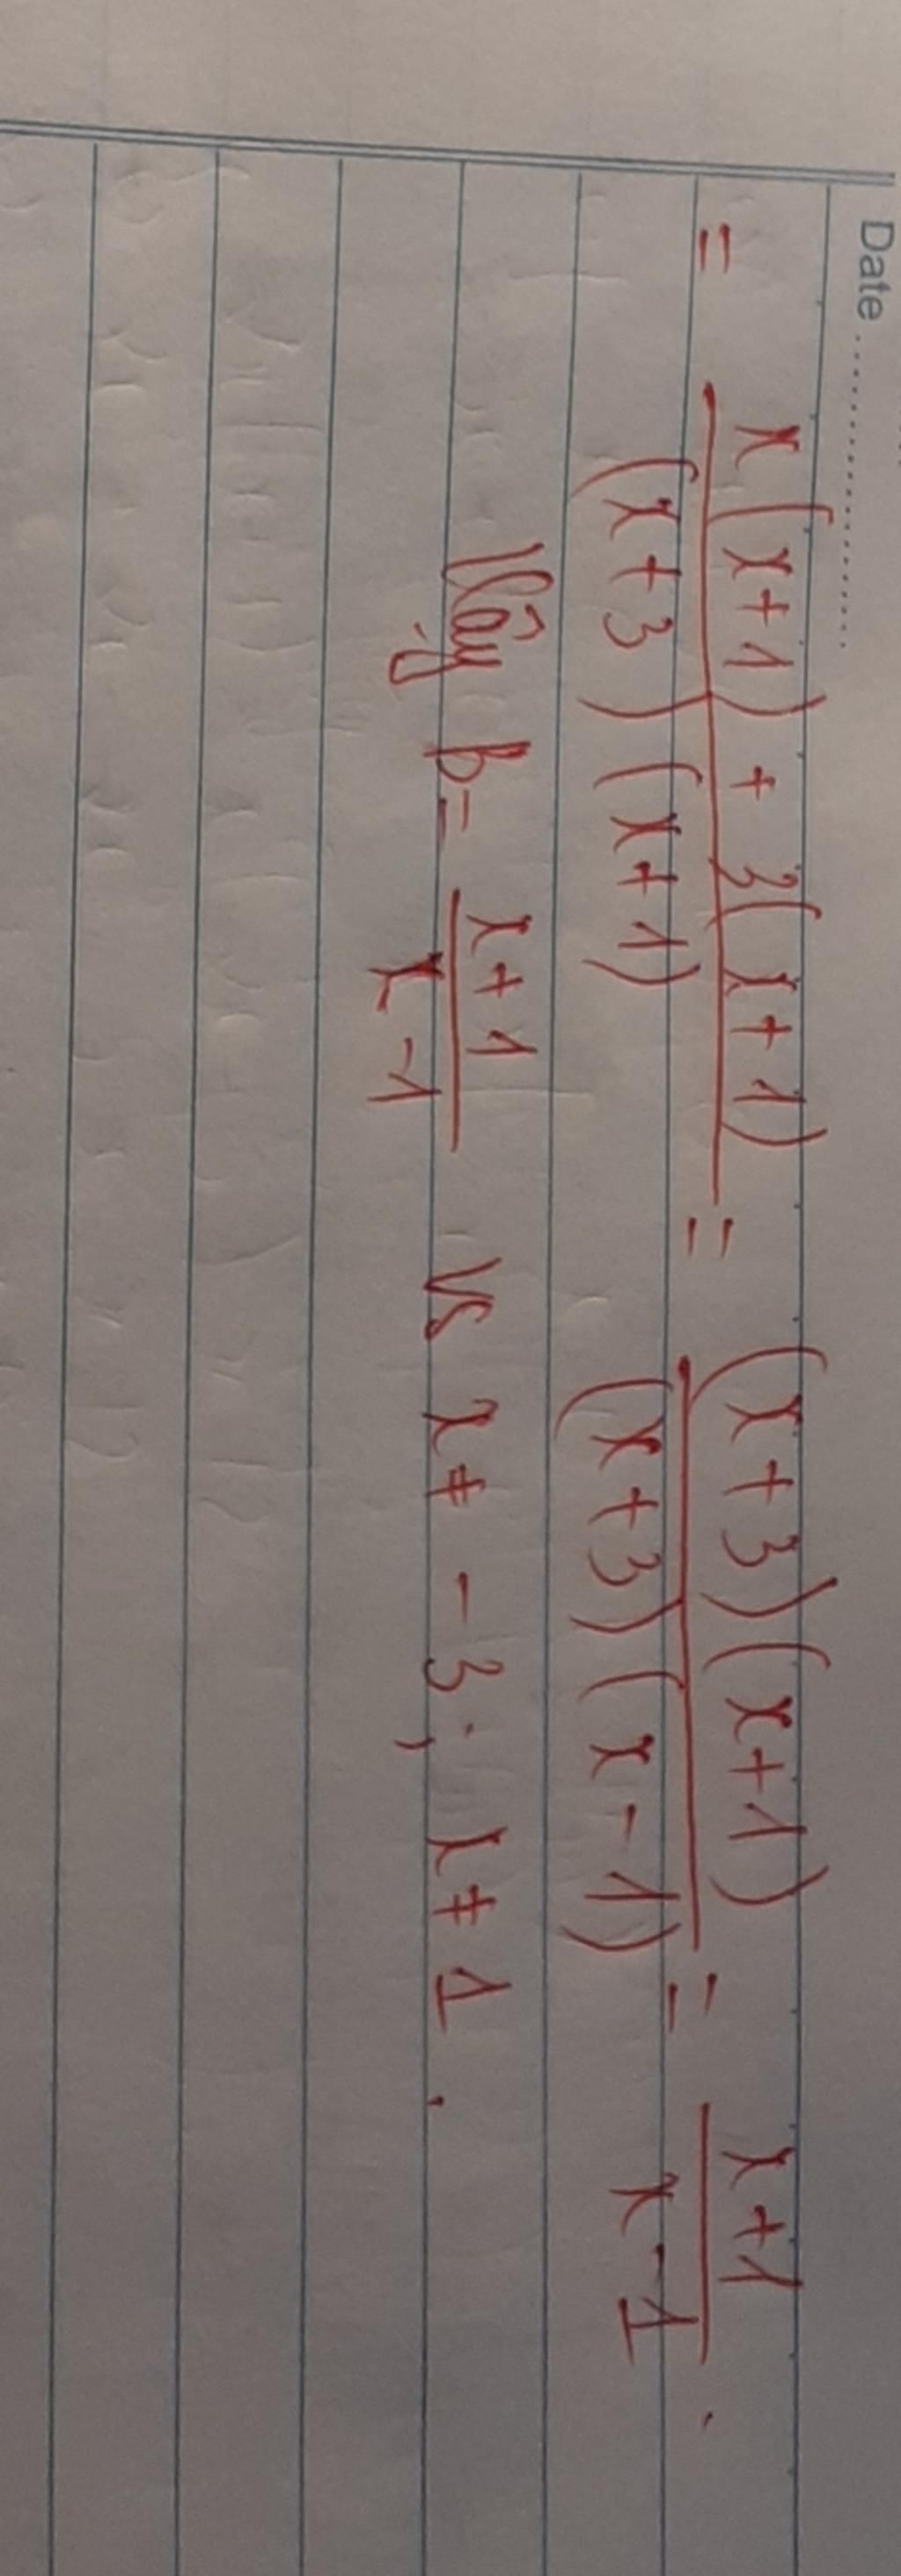 Date ....................
= \frac{x(x+1) + 3(x+1)}{(x+3)(x+1)} = \frac{(x+3)(x+1)}{(x+3)(x-1)} = \frac{x+1}{x-1}.
Vậy B = \frac{x+1}{x-1} Vs x ≠ -3; x ≠ 1.